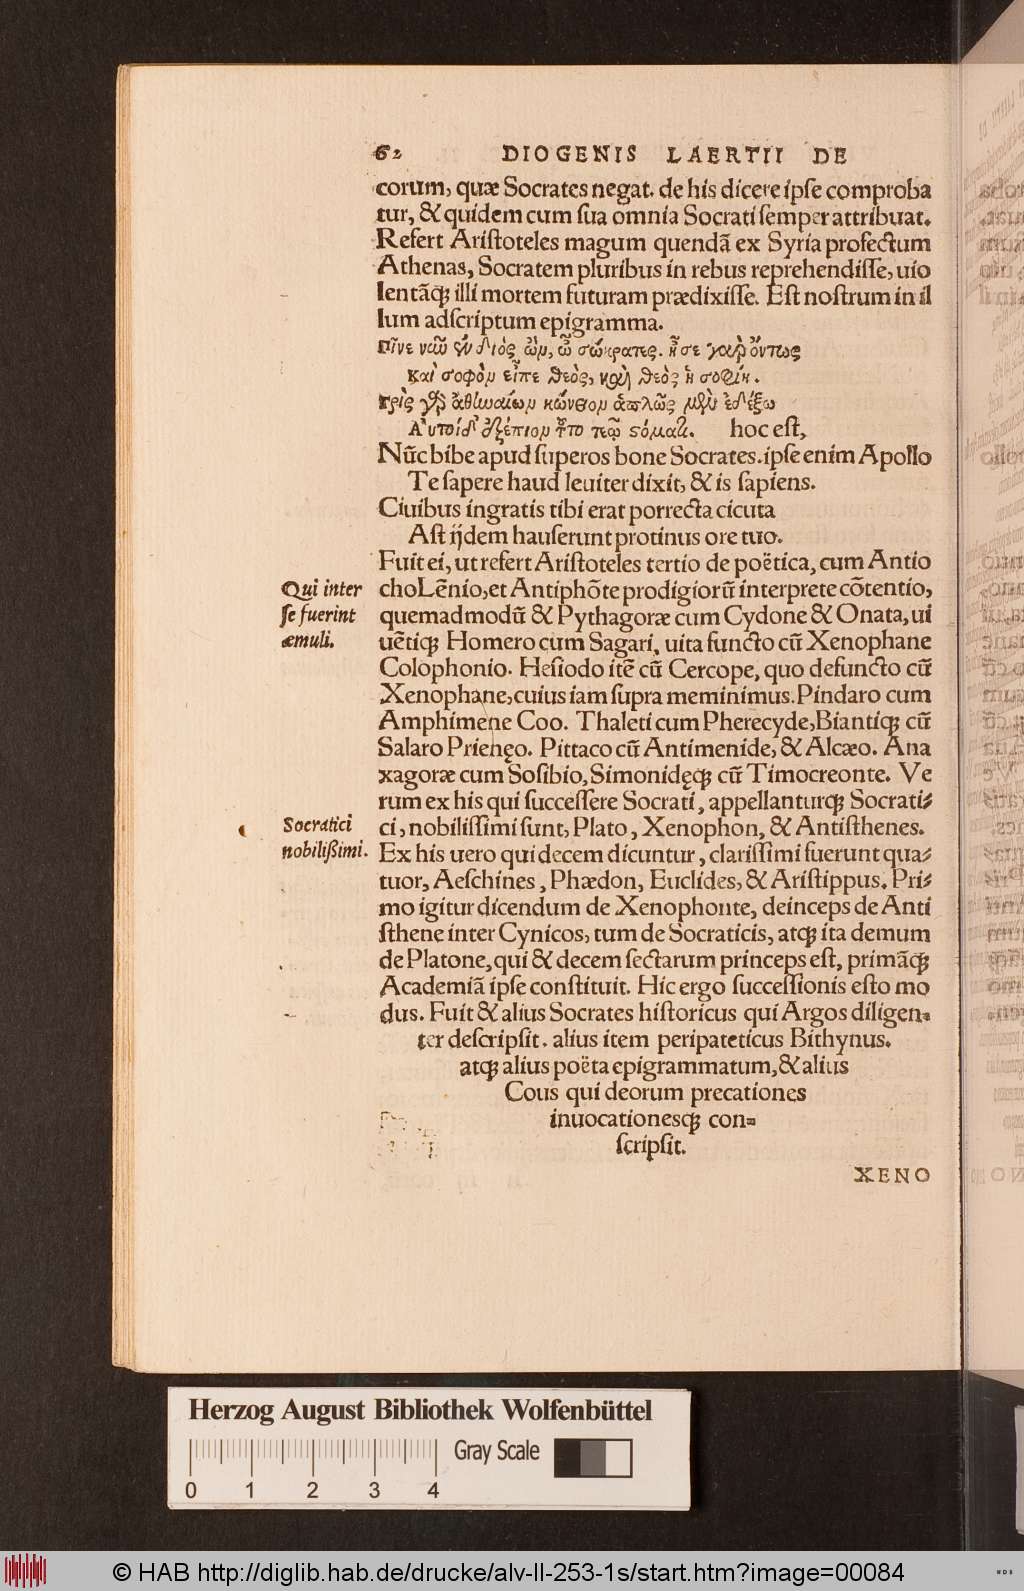 62 DIOGENIS LAERTII DE
corum, quæ Socrates negat. de his dicere ipſe comproba
tur, & quidem cum ſua omnia Socrati ſemper attribuat.
Refert Ariſtoteles magum quendã ex Syria profectum
Athenas, Socratem pluribus in rebus reprehendiſſe, uio
lentãq́; illi mortem futuram prædixiſſe. Eſt noſtrum in il
lum adſcriptum epigramma.
Πῖνε νῦν ἐν διὸς ὢν, ὦ σώκρατες. ἦ σε γὰρ ὄντως
Καὶ σοφὸν εἶπε θεὸς, καὶ θεὸς ἡ σοφίη.
Πρὸς γὰρ ἀθηναίων κώνειον ἁπλῶς μὲν ἐδέξω
Αὐτοὶ δ' ἐξέπιον τοῦτο τεῷ στόματι. hoc eſt,
Nũc bibe apud ſuperos bone Socrates. ipſe enim Apollo
Te ſapere haud leuiter dixit, & is ſapiens.
Ciuibus ingratis tibi erat porrecta cicuta
Aſt ijdem hauſerunt protinus ore tuo.
Fuit ei, ut refert Ariſtoteles tertio de poëtica, cum Antio
cho Lẽnio, et Antiphõte prodigiorũ interprete cõtentio,
quemadmodũ & Pythagoræ cum Cydone & Onata, ui
uẽtiq́; Homero cum Sagari, uita functo cũ Xenophane
Colophonio. Heſiodo itẽ cũ Cercope, quo defuncto cũ
Xenophane, cuius iam ſupra meminimus. Pindaro cum
Amphimene Coo. Thaleti cum Pherecyde, Biantiq́; cũ
Salaro Prienęo. Pittaco cũ Antimenide, & Alcæo. Ana
xagoræ cum Soſibio, Simonidęq́; cũ Timocreonte. Ve
rum ex his qui ſucceſſere Socrati, appellanturq́; Socrati-
ci, nobiliſſimi ſunt, Plato, Xenophon, & Antiſthenes.
Ex his uero qui decem dicuntur, clariſſimi fuerunt qua-
tuor, Aeſchines, Phædon, Euclides, & Ariſtippus. Pri-
mo igitur dicendum de Xenophonte, deinceps de Anti
ſthene inter Cynicos, tum de Socraticis, atq́; ita demum
de Platone, qui & decem ſectarum princeps eſt, primãq́;
Academiã ipſe conſtituit. Hic ergo ſucceſſionis eſto mo
dus. Fuit & alius Socrates hiſtoricus qui Argos diligen-
ter deſcripſit. alius item peripateticus Bithynus.
atq́; alius poëta epigrammatum, & alius
Cous qui deorum precationes
inuocationesq́; con-
ſcripſit.
XENO
Qui inter
ſe fuerint
æmuli.
Socratici
nobilißimi.
Herzog August Bibliothek Wolfenbüttel
Gray Scale
0 1 2 3 4
© HAB http://diglib.hab.de/drucke/alv-ll-253-1s/start.htm?image=00084